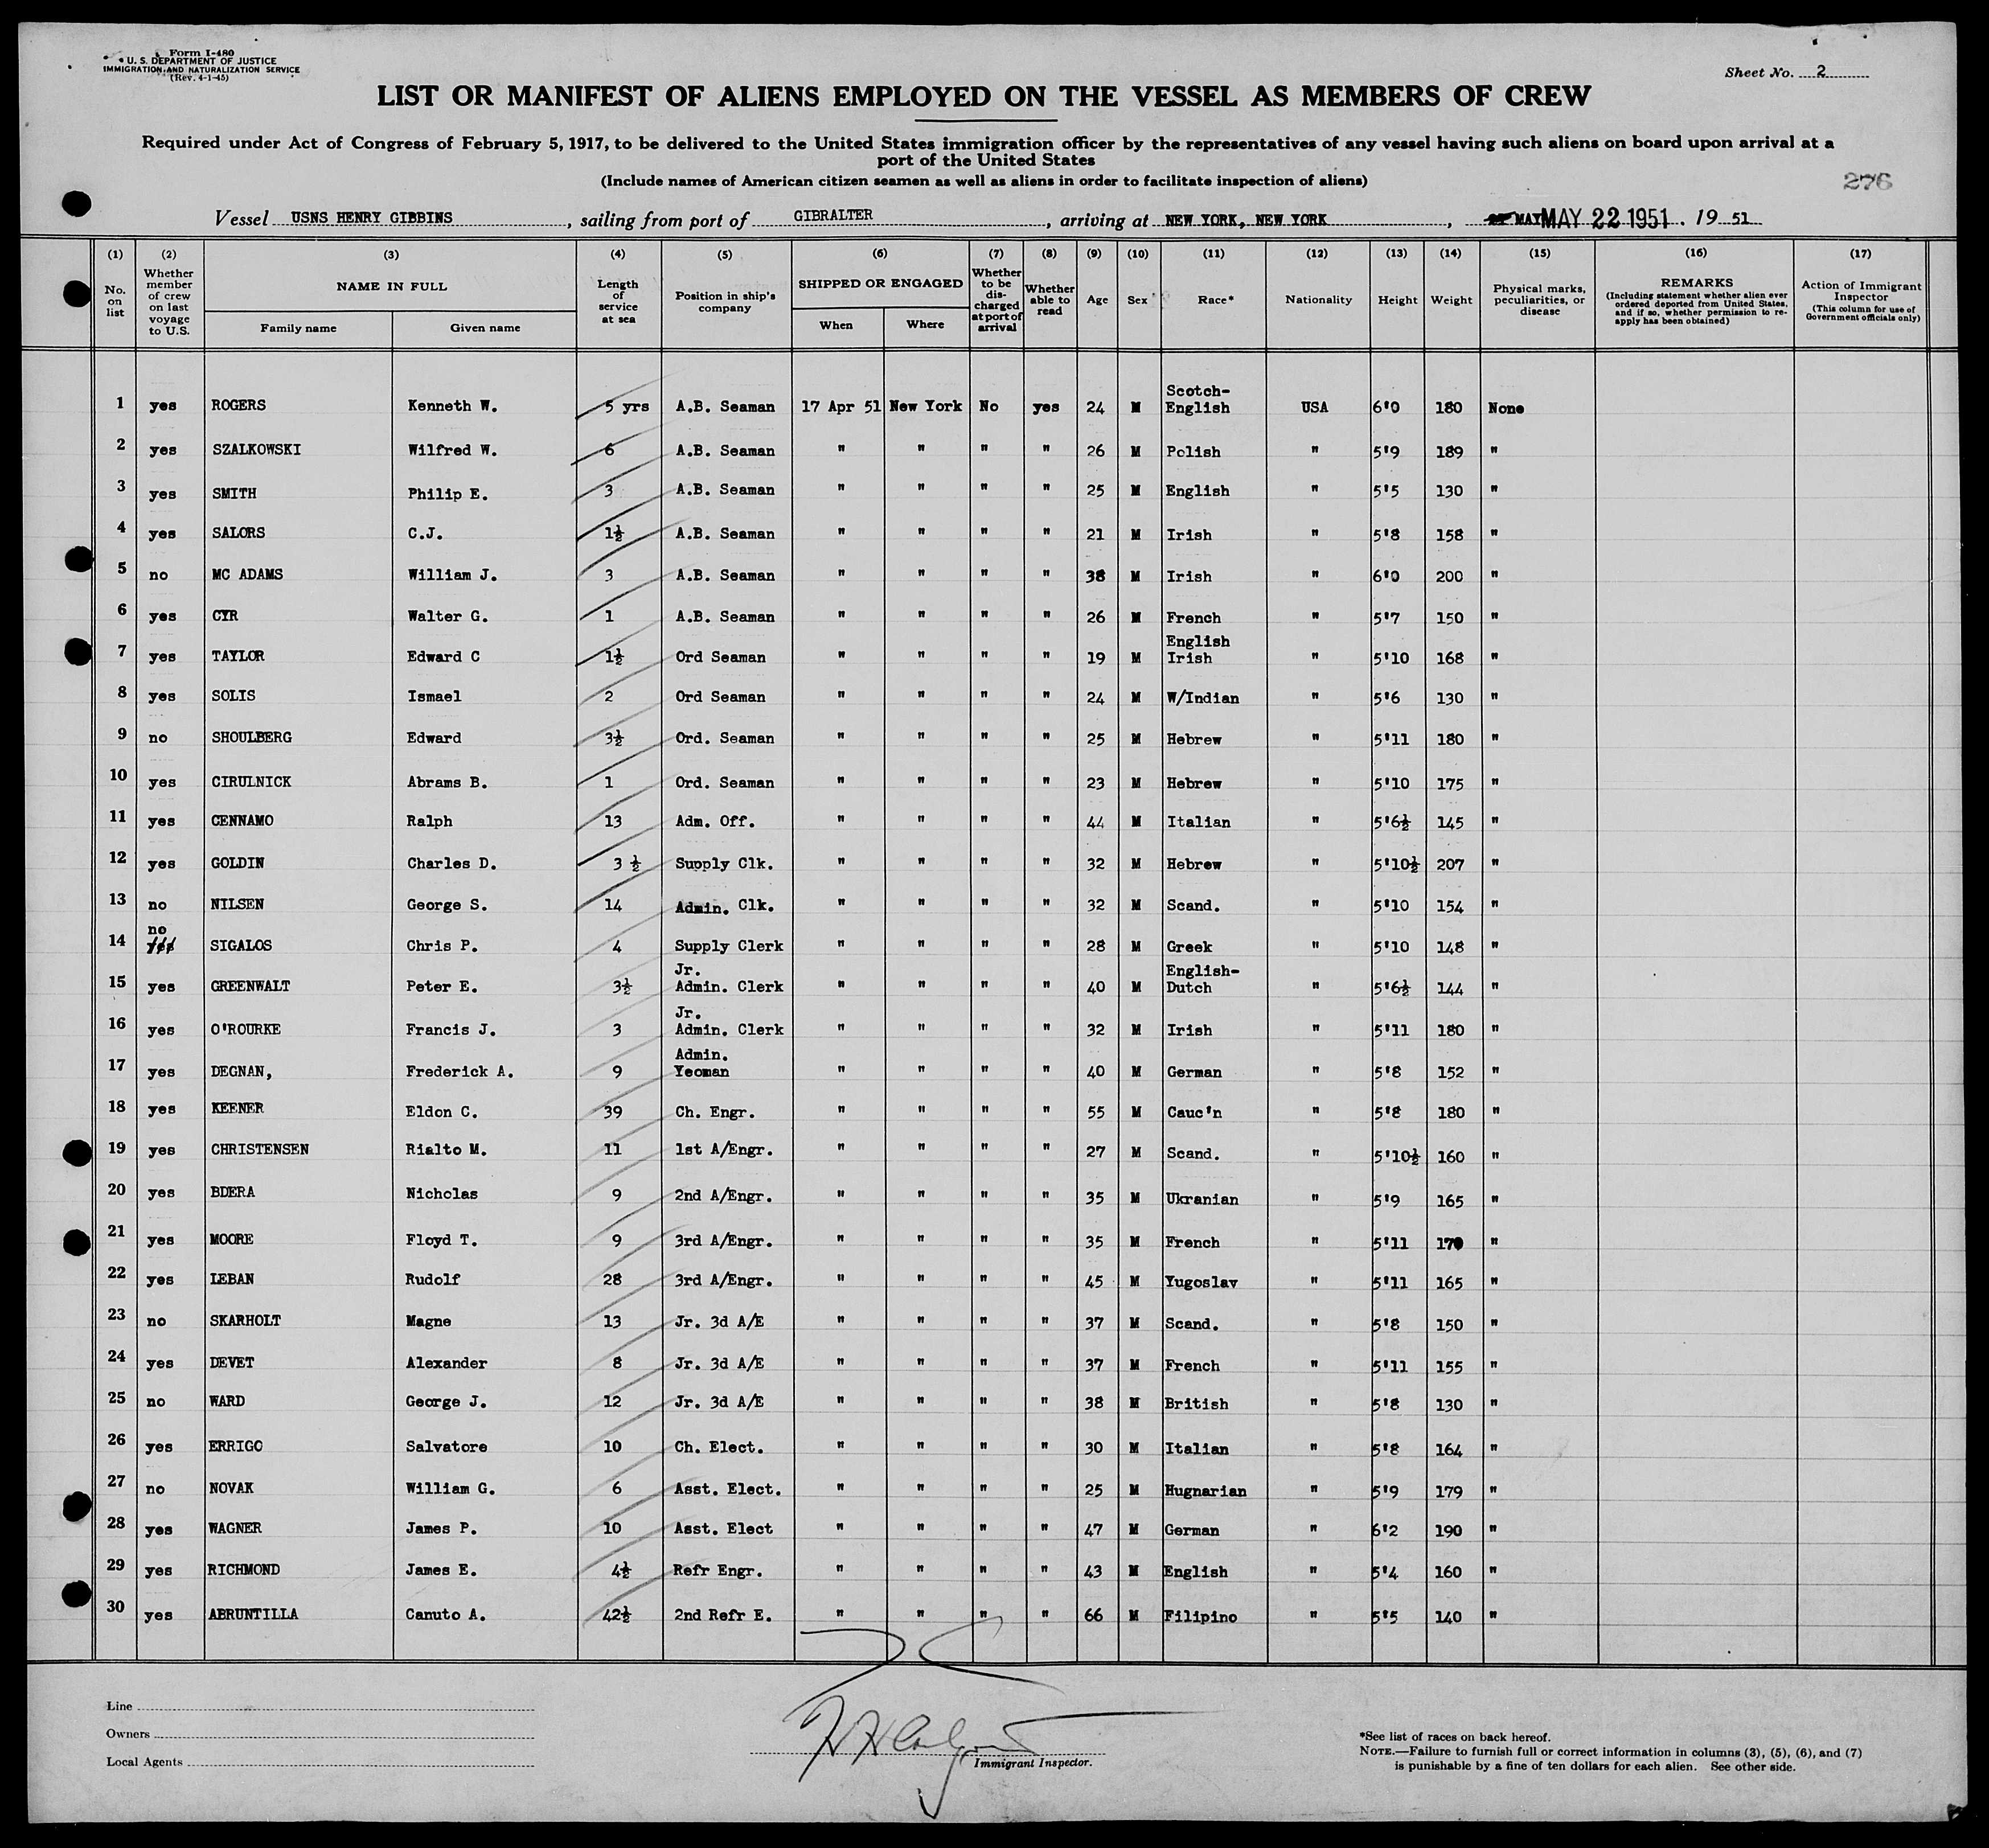 Form I-480
U. S. DEPARTMENT OF JUSTICE
IMMIGRATION AND NATURALIZATION SERVICE
(Rev. 4-1-45)
Sheet No. 2
LIST OR MANIFEST OF ALIENS EMPLOYED ON THE VESSEL AS MEMBERS OF CREW
Required under Act of Congress of February 5, 1917, to be delivered to the United States immigration officer by the representatives of any vessel having such aliens on board upon arrival at a
port of the United States
(Include names of American citizen seamen as well as aliens in order to facilitate inspection of aliens)
276
Vessel USNS HENRY GIBBINS, sailing from port of GIBRALTER, arriving at NEW YORK, NEW YORK, MAY MAY 22 1951. 19 51
(1) (2) (3) (4) (5) (6) (7) (8) (9) (10) (11) (12) (13) (14) (15) (16) (17)
No. on list
Whether member of crew on last voyage to U.S.
NAME IN FULL
Family name
Given name
Length of service at sea
Position in ship's company
SHIPPED OR ENGAGED
When
Where
Whether to be discharged at port of arrival
Whether able to read
Age
Sex
Race*
Nationality
Height
Weight
Physical marks, peculiarities, or disease
REMARKS
(Including statement whether alien ever ordered deported from United States, and if so, whether permission to re-apply has been obtained)
Action of Immigrant Inspector
(This column for use of Government officials only)
1 yes ROGERS Kenneth W. 5 yrs A.B. Seaman 17 Apr 51 New York No yes 24 M Scotch-English USA 6'0 180 None
2 yes SZALKOWSKI Wilfred W. 6 A.B. Seaman " " " " 26 M Polish " 5'9 189 "
3 yes SMITH Philip E. 3 A.B. Seaman " " " " 25 M English " 5'5 130 "
4 yes SALORS C.J. 1½ A.B. Seaman " " " " 21 M Irish " 5'8 158 "
5 no MC ADAMS William J. 3 A.B. Seaman " " " " 38 M Irish " 6'0 200 "
6 yes CYR Walter G. 1 A.B. Seaman " " " " 26 M French " 5'7 150 "
7 yes TAYLOR Edward C 1½ Ord Seaman " " " " 19 M English Irish " 5'10 168 "
8 yes SOLIS Ismael 2 Ord Seaman " " " " 24 M W/Indian " 5'6 130 "
9 no SHOULBERG Edward 3½ Ord. Seaman " " " " 25 M Hebrew " 5'11 180 "
10 yes CIRULNICK Abrams B. 1 Ord. Seaman " " " " 23 M Hebrew " 5'10 175 "
11 yes CENNAMO Ralph 13 Adm. Off. " " " " 44 M Italian " 5'6½ 145 "
12 yes GOLDIN Charles D. 3 ½ Supply Clk. " " " " 32 M Hebrew " 5'10½ 207 "
13 no NILSEN George S. 14 Admin. Clk. " " " " 32 M Scand. " 5'10 154 "
14 no yes SIGALOS Chris P. 4 Supply Clerk " " " " 28 M Greek " 5'10 148 "
15 yes GREENWALT Peter E. 3½ Jr. Admin. Clerk " " " " 40 M English-Dutch " 5'6½ 144 "
16 yes O'ROURKE Francis J. 3 Jr. Admin. Clerk " " " " 32 M Irish " 5'11 180 "
17 yes DEGNAN, Frederick A. 9 Admin. Yeoman " " " " 40 M German " 5'8 152 "
18 yes KEENER Eldon C. 39 Ch. Engr. " " " " 55 M Cauc'n " 5'8 180 "
19 yes CHRISTENSEN Rialto M. 11 1st A/Engr. " " " " 27 M Scand. " 5'10½ 160 "
20 yes BDERA Nicholas 9 2nd A/Engr. " " " " 35 M Ukranian " 5'9 165 "
21 yes MOORE Floyd T. 9 3rd A/Engr. " " " " 35 M French " 5'11 170 "
22 yes LEBAN Rudolf 28 3rd A/Engr. " " " " 45 M Yugoslav " 5'11 165 "
23 no SKARHOLT Magne 13 Jr. 3d A/E " " " " 37 M Scand. " 5'8 150 "
24 yes DEVET Alexander 8 Jr. 3d A/E " " " " 37 M French " 5'11 155 "
25 no WARD George J. 12 Jr. 3d A/E " " " " 38 M British " 5'8 130 "
26 yes ERRIGO Salvatore 10 Ch. Elect. " " " " 30 M Italian " 5'8 164 "
27 no NOVAK William G. 6 Asst. Elect. " " " " 25 M Hugnarian " 5'9 179 "
28 yes WAGNER James P. 10 Asst. Elect " " " " 47 M German " 6'2 190 "
29 yes RICHMOND James E. 4½ Refr Engr. " " " " 43 M English " 5'4 160 "
30 yes ABRUNTILLA Canuto A. 42½ 2nd Refr E. " " " " 66 M Filipino " 5'5 140 "
Line
Owners
Local Agents
Immigrant Inspector.
*See list of races on back hereof.
NOTE.—Failure to furnish full or correct information in columns (3), (5), (6), and (7)
is punishable by a fine of ten dollars for each alien. See other side.